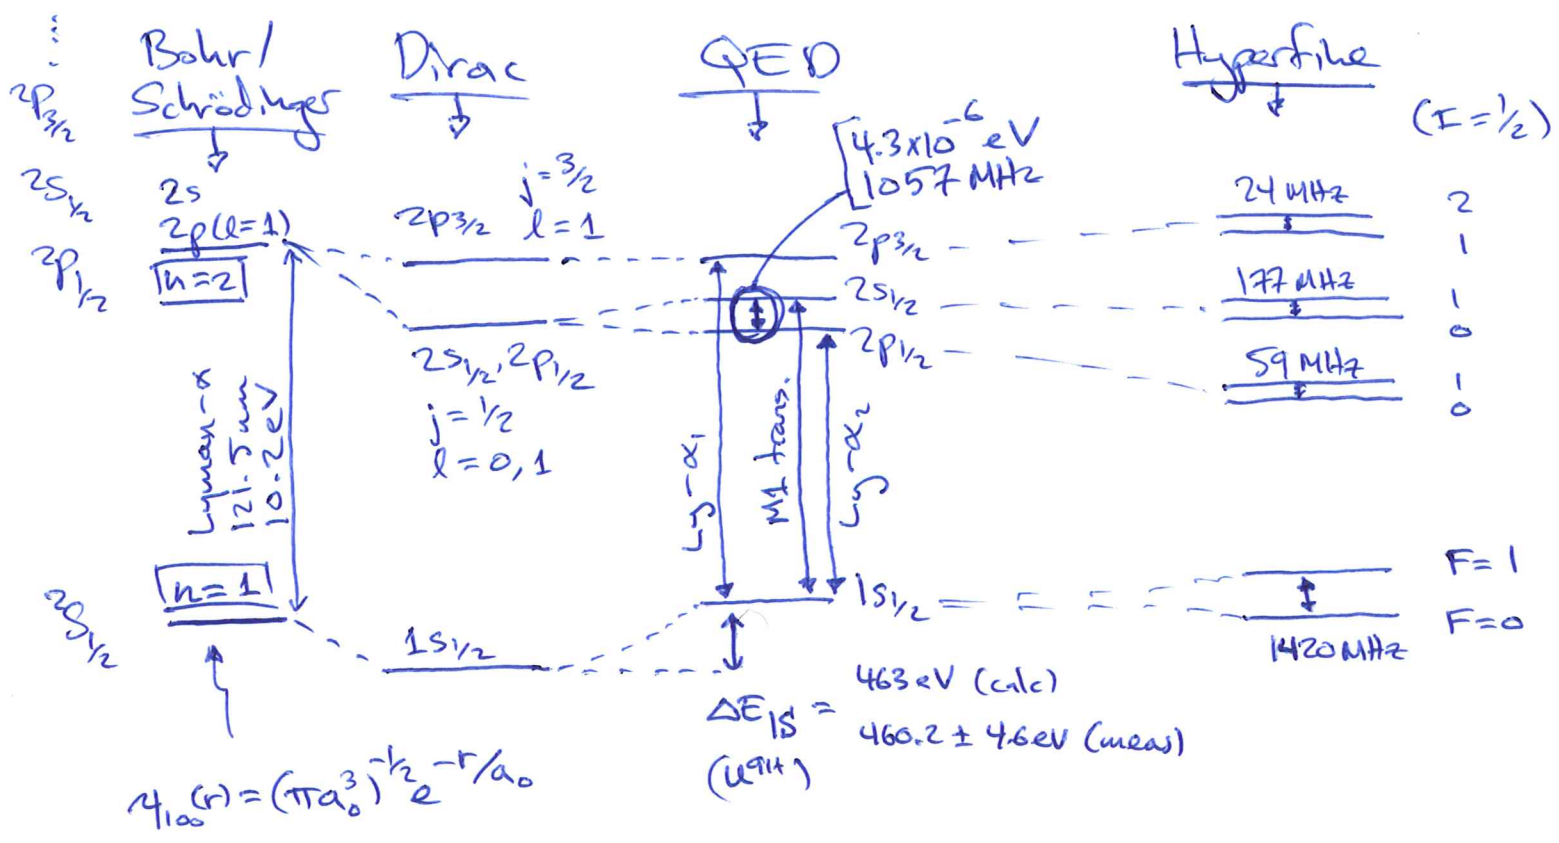 ⋮
²P3/2
²S1/2
²P1/2
²S1/2
Bohr/
Schrödinger
2s
2p(l=1)
n=2
Lyman-α
121.5 nm
10.2 eV
n=1
ψ100(r) = (πa₀³)^-1/2 e^-r/a₀
Dirac
j=3/2
2p3/2 l=1
2s1/2, 2p1/2
j=1/2
l=0,1
1s1/2
QED
4.3x10⁻⁶ eV
1057 MHz
2p3/2
2s1/2
2p1/2
Ly-α1
M1 trans.
Ly-α2
1s1/2
ΔE1S = 463 eV (calc)
460.2 ± 4.6 eV (meas)
(U⁹¹⁺)
Hyperfine
(I=1/2)
24 MHz
2
1
177 MHz
1
0
59 MHz
1
0
F=1
F=0
1420 MHz